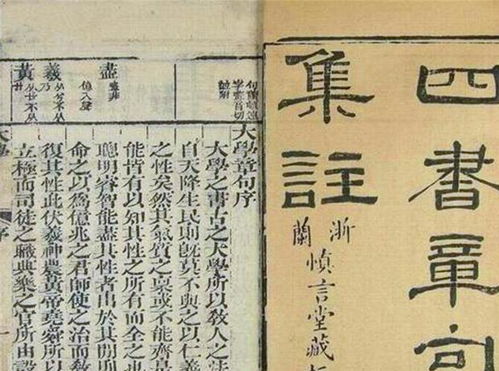 四書章句
集註
浙
蘭
慎言堂藏
大學章句序
大學之書古之大學所以教人之法
自天降生民則既莫不與之以仁義
之性矣然其氣質之稟或不能齊
能皆有以知其性之所有而全之也
聰明睿智能盡其性者出於其間則
命之以為億兆之君師使之治而教
復其性此伏羲神農黃帝堯舜所以
立極而司徒之職典樂之官所由設
盡
羲
黃
大學
序